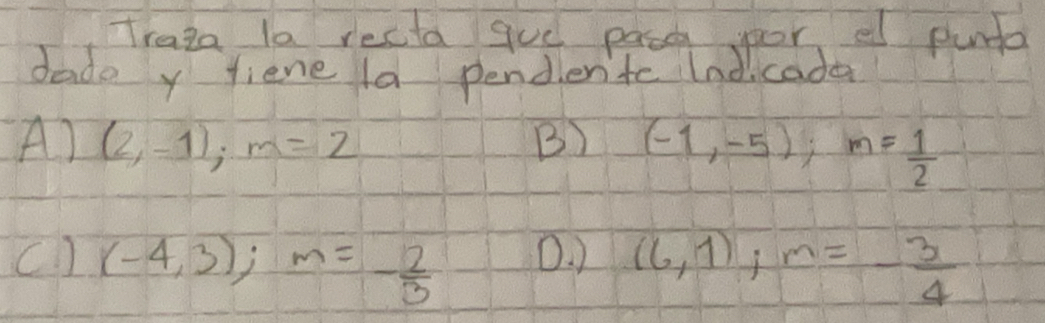 Traza la recta que pasa por el punto
dado y tiene la pendiente Indicada
A) (2,-1); m = 2 B) (-1,-5); m = 1/2
C) (-4,3); m = -2/3 D.) (6,1); m = -3/4